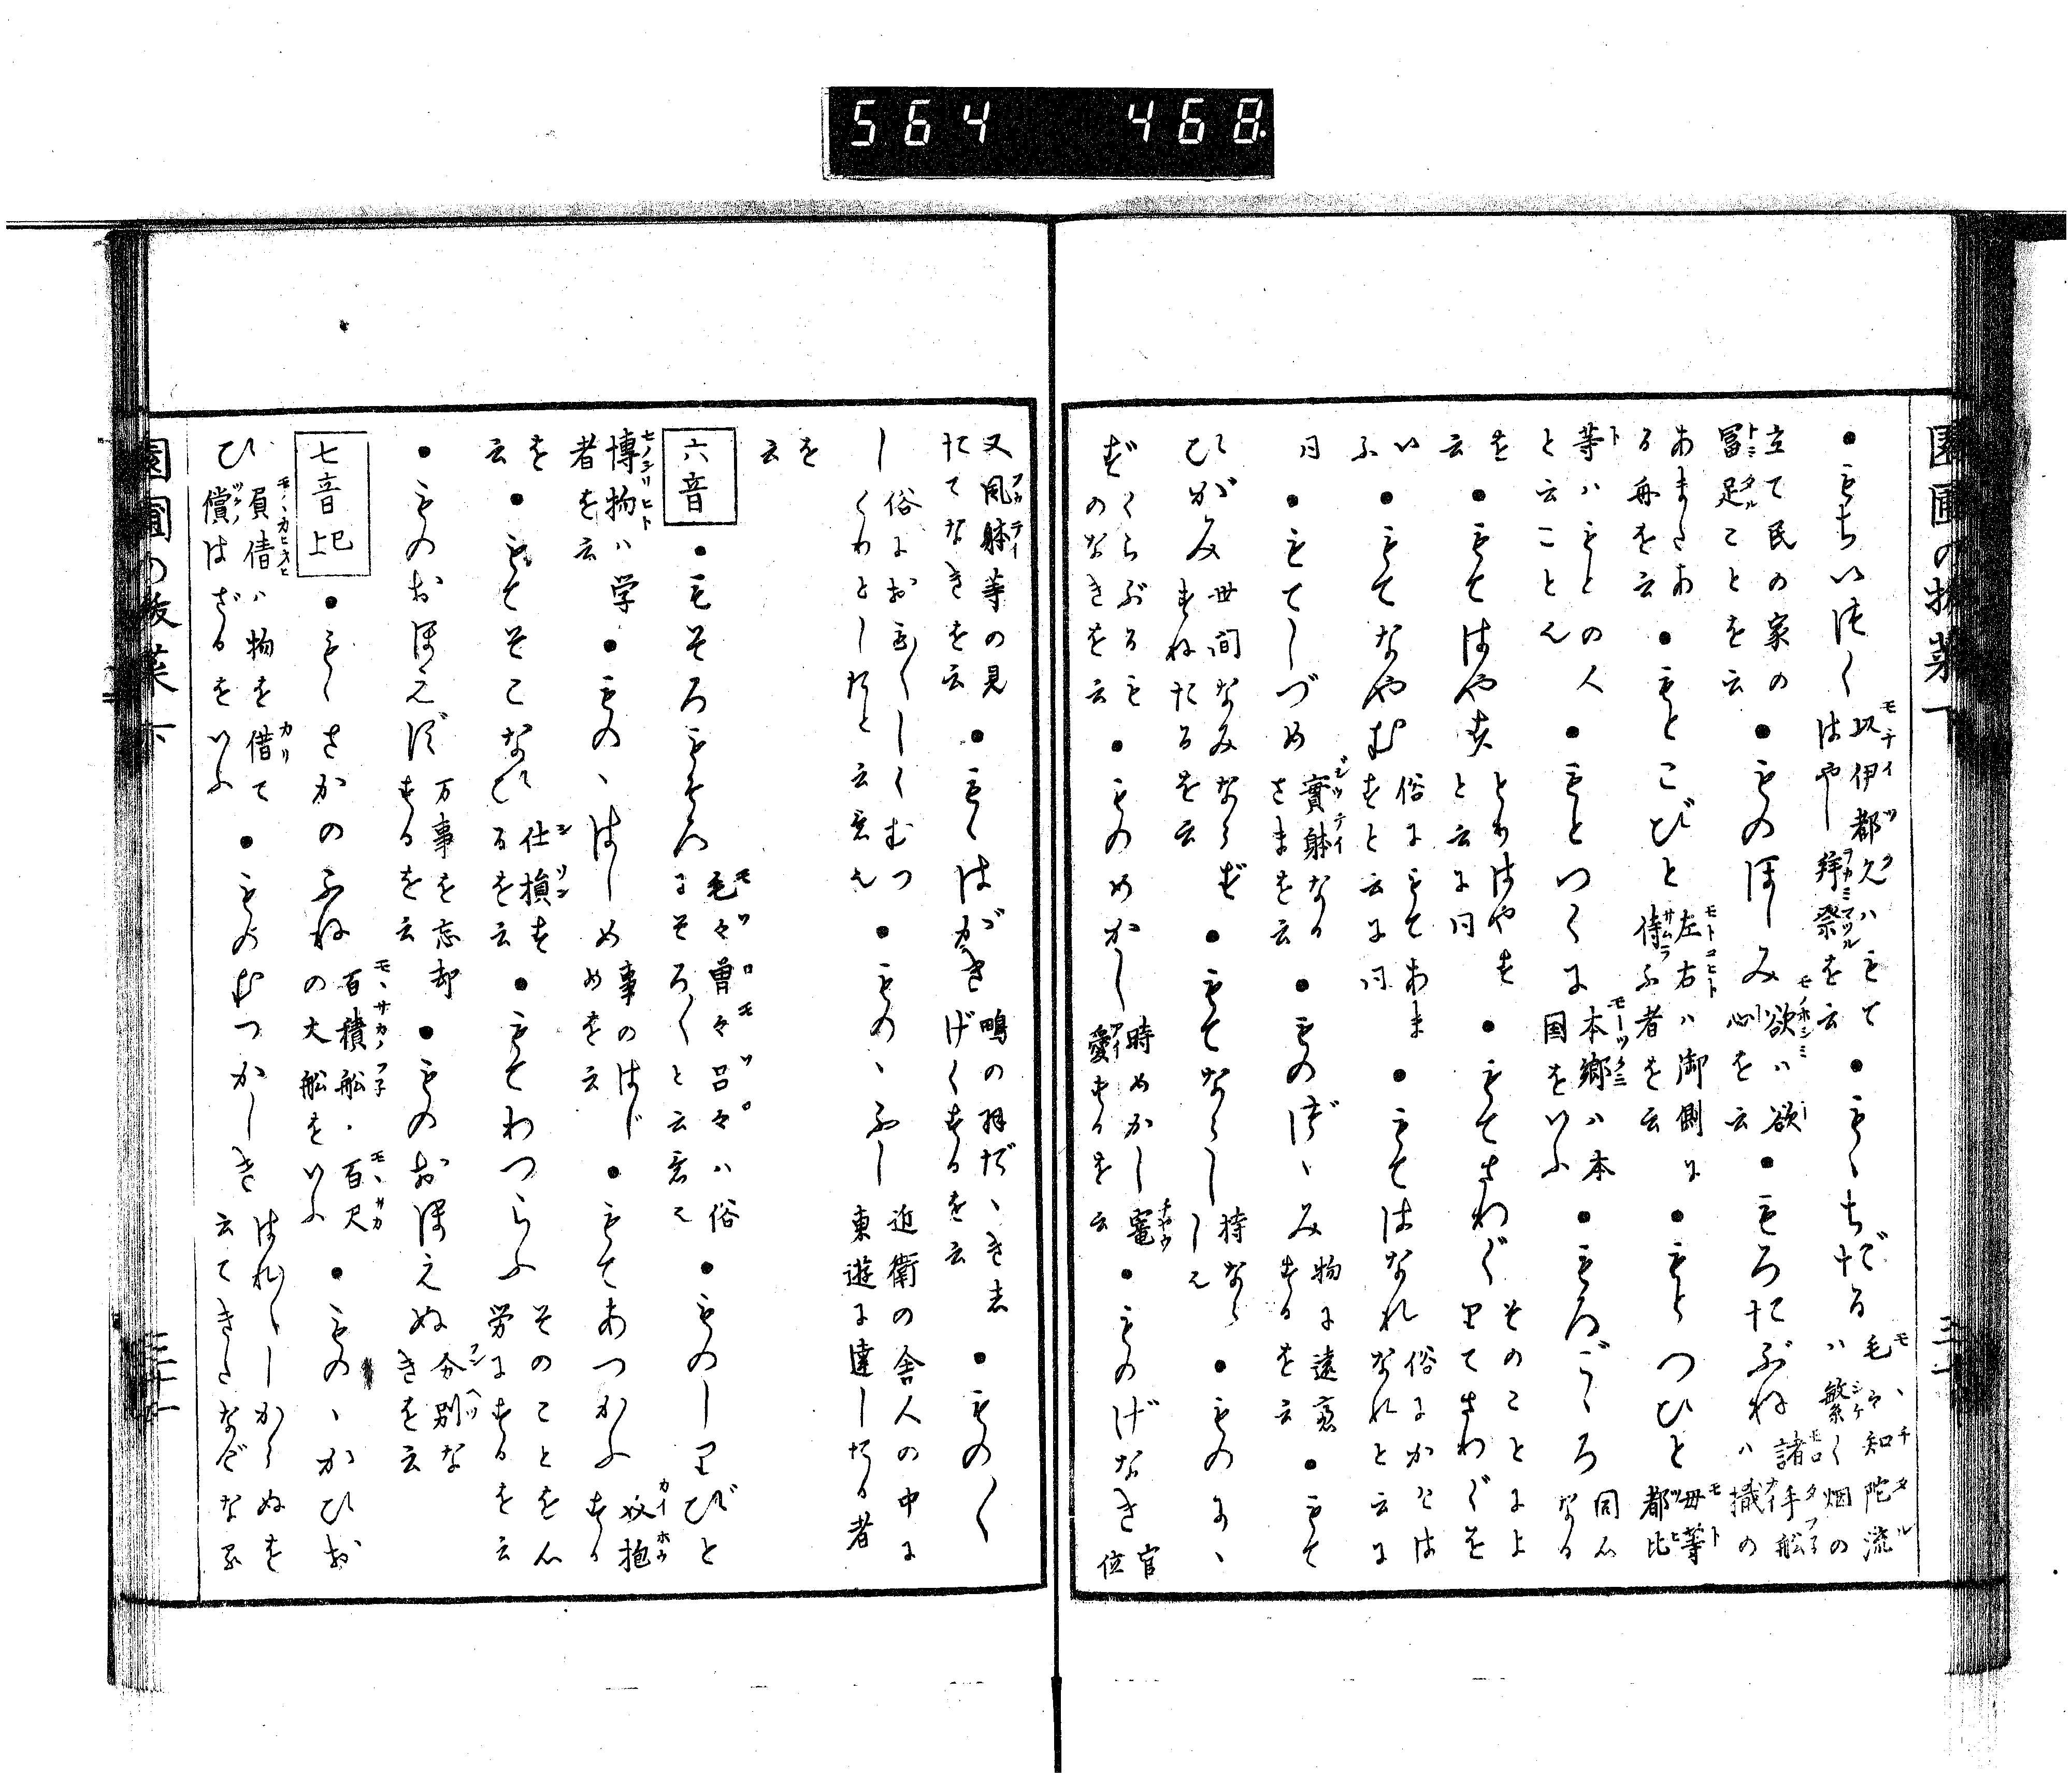 564 468
●もちいつく 以伊都久ハもてはやし拝祭を云 ●もゝちだる 毛ゝ知陀流ハ繁く烟の
立て民の家の冨足ことを云 ●ものほしみ 欲ハ欲心を云 ●もろたぶね 諸手船ハ擑の
あまたある舟を云 ●もとこびと 左右ハ御側に侍ふ者を云 ●もとつひと 毋等都比
等ハもとの人と云こと也 ●もとつくに 本郷ハ本国をいふ ●もろごゝろ 同心なる
を云 ●もてはやす とりはやすと云に同 ●もてさわぐ そのことによりてさわぐを
いふ ●もてなやむ 俗にもてあますと云に同 ●もてはなれ 俗にかけはなれと云に
同 ●もてしづめ 實躰なるさまを云 ●ものづゝみ 物に遠慮するを云 ●もて
ひがみ 世間なみならずすねたるを云 ●もてならし 持ならし也 ●ものにゝ
ず くらぶるものなきを云 ●ものめかし 時めかし寵愛するを云 ●ものげなき 官位
又風躰等の見たてなきを云 ●もゝはがき 鴫の羽だゝき志げくするを云 ●もの〱
し 俗におも〱しくむつくりとしたと云意也 ●ものゝふし 近衛の舎人の中に東遊に達したる者
を云
六音 ●もそろもそろに 毛々曽々呂々ハ俗にそろ〱と云意也 ●ものしりびと
博物ハ学者を云 ●ものゝはしめ 事のはじめを云 ●もてあつかふ 奴抱する
を云 ●もてそこなひ 仕損ずるを云 ●もてわつらふ そのことを心労にするを云
●ものおほえず 万事を忘却するを云 ●ものおほえぬ 分別なきを云
七音 上巳 ●もゝさかのふね 百積船・百尺の大船をいふ ●ものゝかひお
ひ 負借ハ物を借て償はざるをいふ ●ものむつかしき はれ〱しからぬを云てきたなげなる